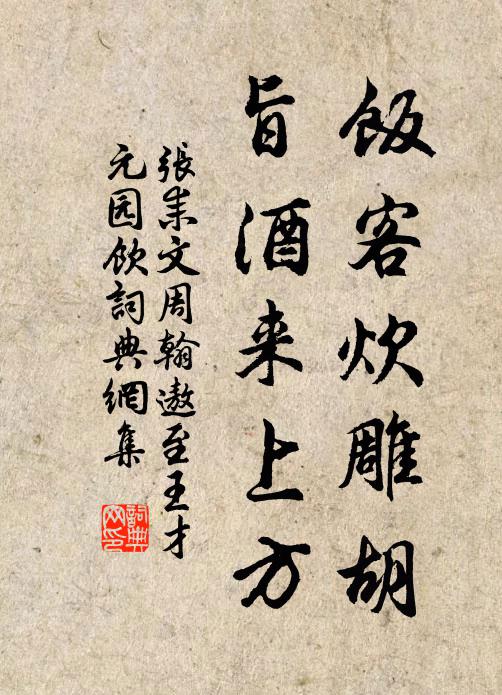 飯客炊雕胡
旨酒来上方
張耒文周翰遨至王才
元园飲詞典網集
詞典
网印